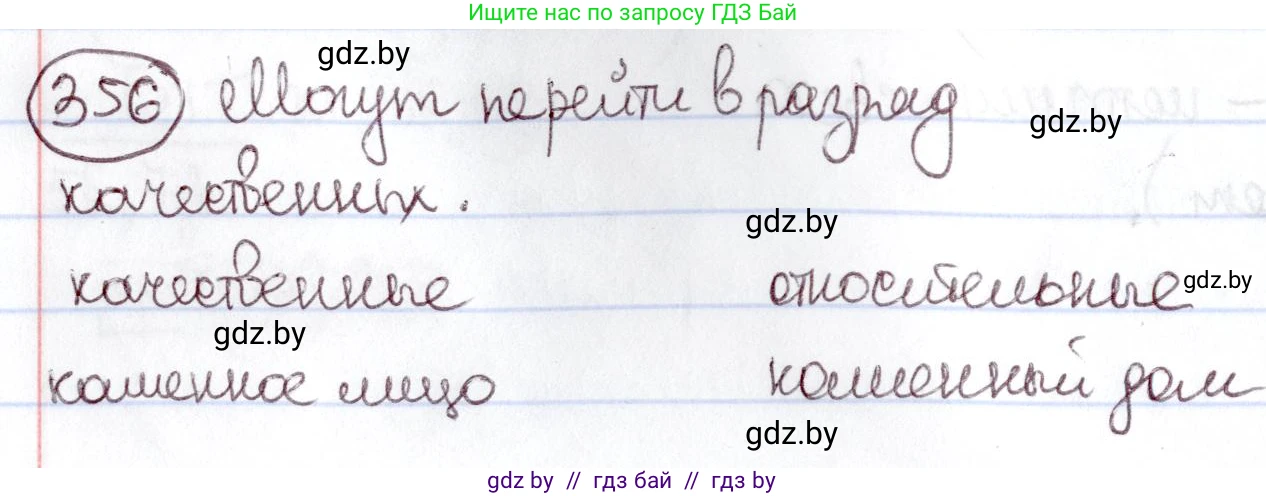 Ищите нас по запросу ГДЗ Бай
gdz.by
356 Могут перейти в разряд
gdz.by
качественных.
gdz.by
качественные относительные gdz.by
gdz.by
каменное лицо каменный дом
gdz.by
gdz.by // гдз бай // gdz by